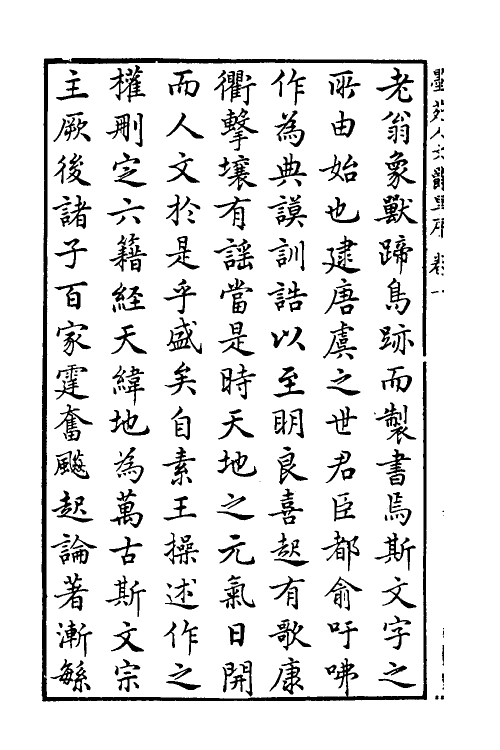 老翁象獸蹄鳥跡而製書焉斯文字之
所由始也逮唐虞之世君臣都俞吁咈
作為典謨訓誥以至明良喜起有歌康
衢擊壤有謠當是時天地之元氣日開
而人文於是乎盛矣自素王操述作之
權刪定六籍經天緯地為萬古斯文宗
主厥後諸子百家霆奮飈起論著漸緐